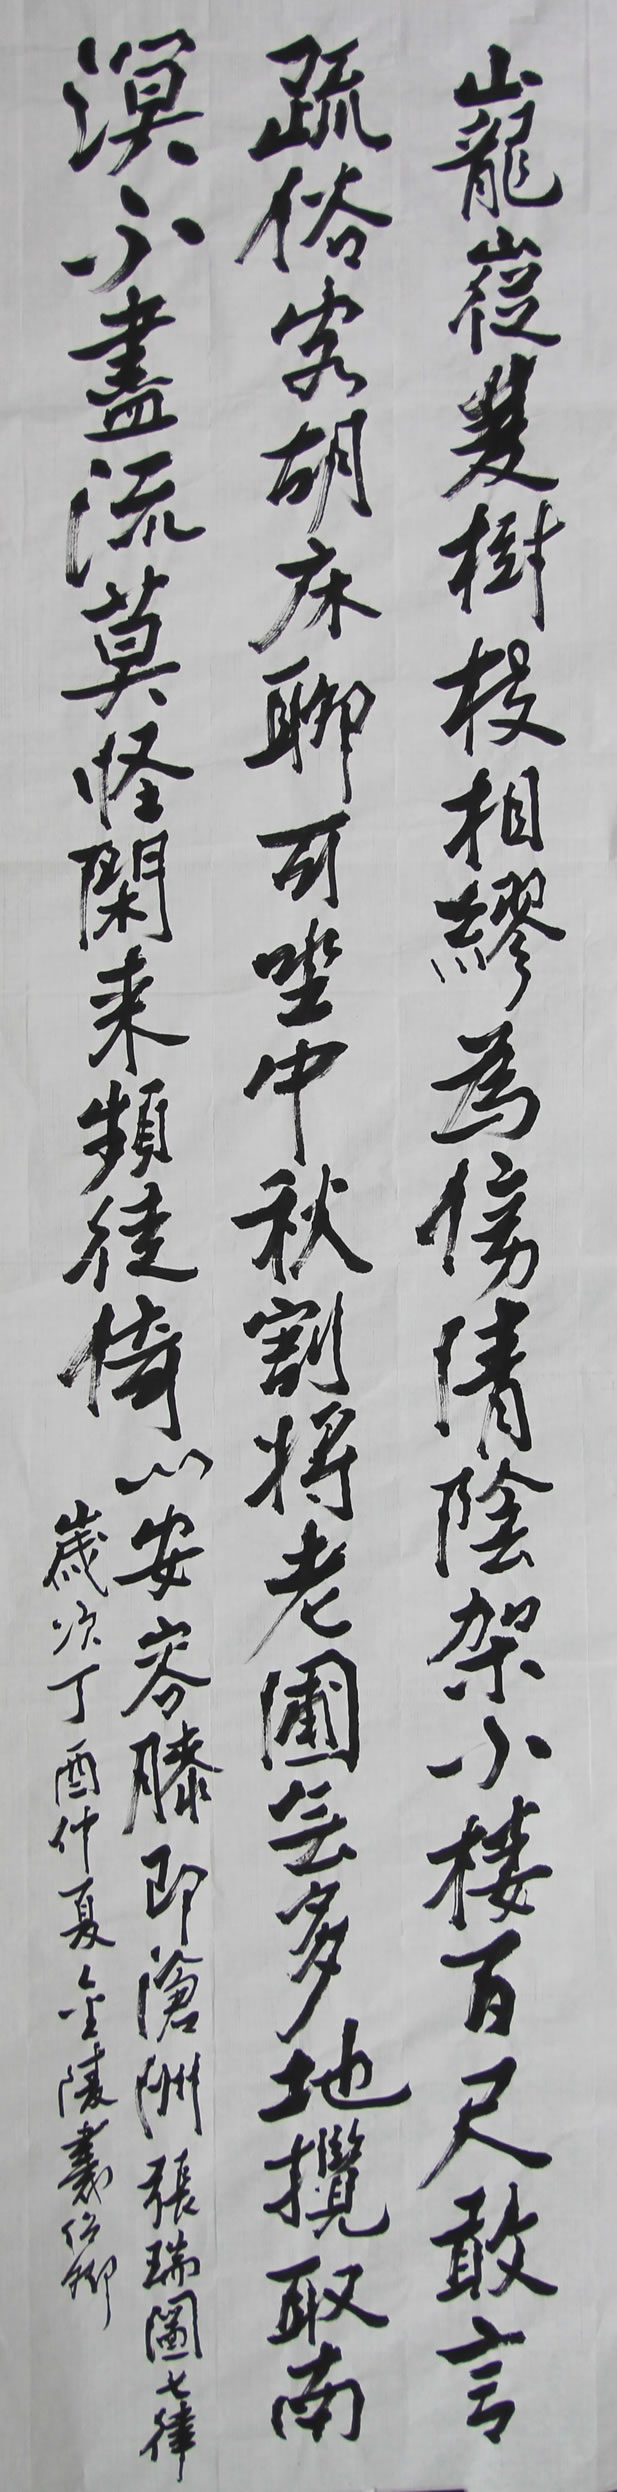 山巃嵸叢樹枝相繆為傍清陰架小樓百尺敢言
疏俗客胡床聊可坐中秋割將老圃無多地攬取南
溟不盡流莫怪閑來頻徙倚
小安容膝即滄洲張瑞圖七律
歲次丁酉仲夏金陵書